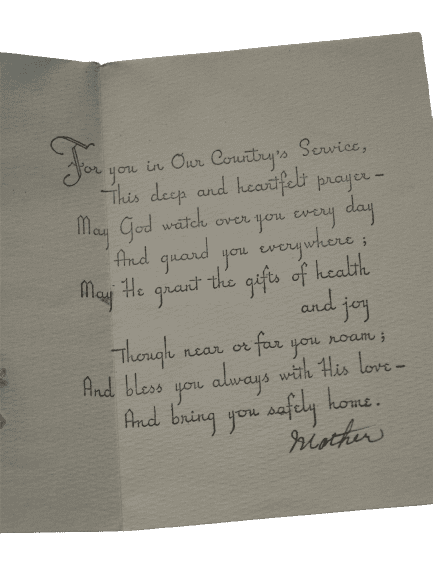 For you in Our Country's Service,
This deep and heartfelt prayer-
May God watch over you every day
And guard you everywhere;
May He grant the gifts of health
and joy
Though near or far you roam;
And bless you always with His love-
And bring you safely home.
Mother